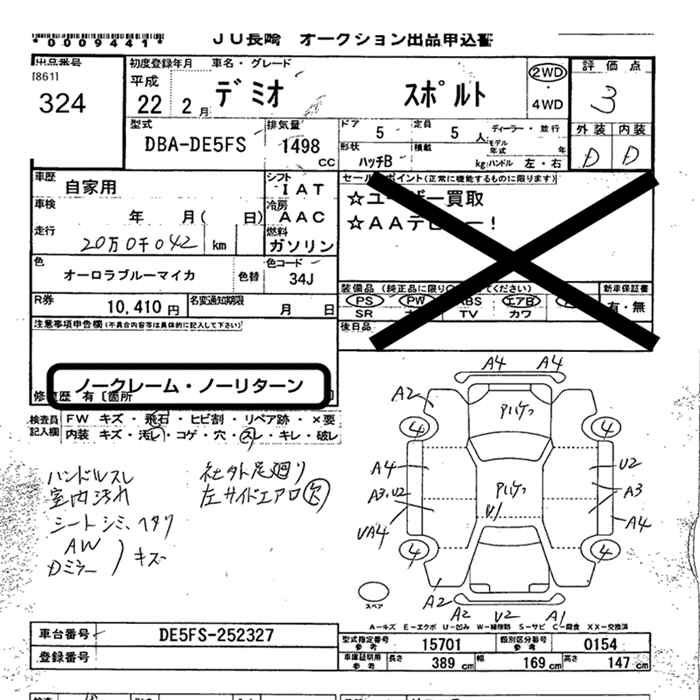 *0009441*
JU長崎 オークション出品申込書
出品番号
[861]
324
初度登録年月 車名・グレード
平成
22 2月 デミオ スポルト
2WD
・
4WD
評価点
3
外装 内装
D D
型式
DBA-DE5FS
排気量
1498
cc
ドア 5 定員 5 人
形状 ハッチB 積載 kg
ディーラー・並行
モデル年式 年
ハンドル 左・右
車歴 自家用
車検 年 月( 日)
走行 20万0千042 km
シフト IAT
冷房 AAC
燃料 ガソリン
色 オーロラブルーマイカ 色替
色コード 34J
R券 10,410円
名変通知期限 月 日
セールスポイント(正常に機能するものに限ります)
☆ユーザー買取
☆AAデビュー!
装備品
PS PW ABS エアB
SR TV カワ
新車保証書
有・無
後日品
注意事項申告欄(不具合内容等は具体的に記入して下さい)
ノークレーム・ノーリターン
修復歴 有〔箇所
検査員記入欄
FW キズ・飛石・ヒビ割・リペア跡・×要
内装 キズ・汚レ・コゲ・穴・スレ・キレ・破レ
ハンドルスレ
室内汚れ
シートシミ、ヘタリ
AW
Dミラー
キズ
社外足廻り
左サイドエアロ欠
A4 A4
A2
4 4
A4 U2
A3.U2 A3
A4
4 4
V1
A2 A2 V2 A1
スペア
A-キズ E-エクボ U-凹み W-補修跡 S-サビ C-腐食 XX-交換済
車台番号 DE5FS-252327
登録番号
型式指定番号 参考 15701
類別区分番号 参考 0154
車庫証明用 参考 長さ 389 cm 幅 169 cm 高さ 147 cm